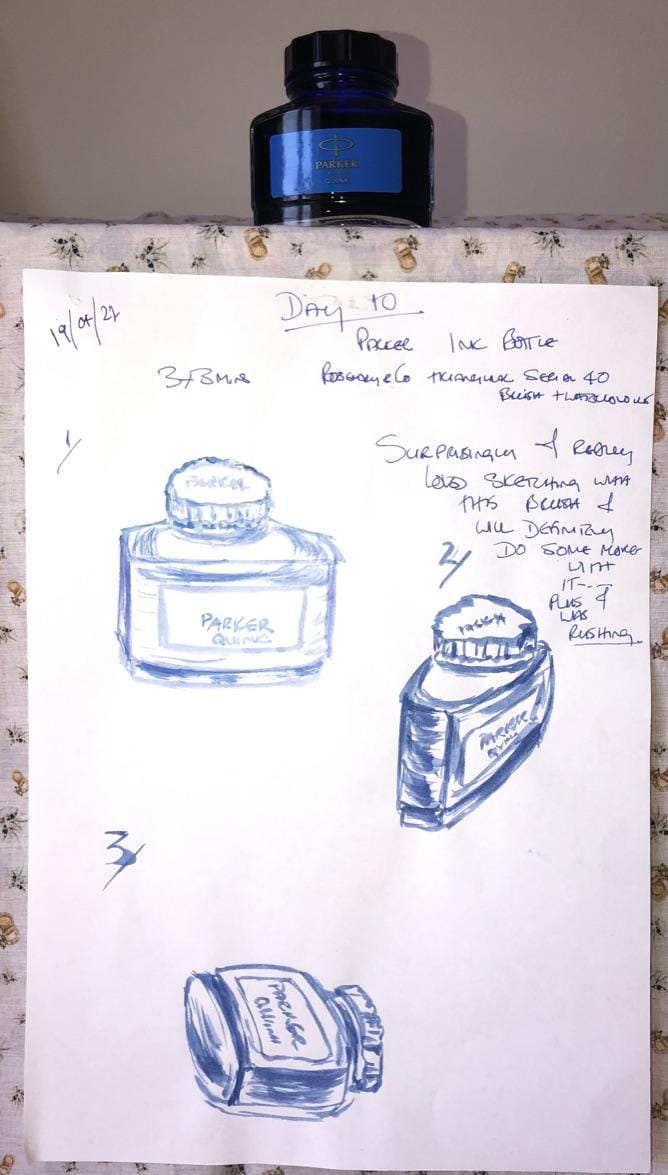 PARKER
QUINK
Day 10
19/04/24
Parker Ink Bottle
3x3 Mins
Rosemary & Co triangular Series 40
Brush + watercolours
1/
Surprisingly I really
loved sketching with
this brush &
will definitely
do some more
2/
with
it---
Plus I
was
Rushing
PARKER
PARKER
QUINK
PARKER
3/
PARKER
QUINK